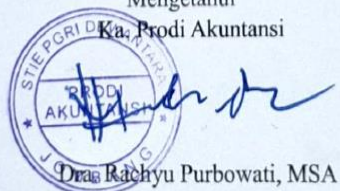 Mengetahui
Ka. Prodi Akuntansi
STIE PGRI DEWANTARA
PRODI
AKUNTANSI
JOMBANG
Dra. Rachyu Purbowati, MSA